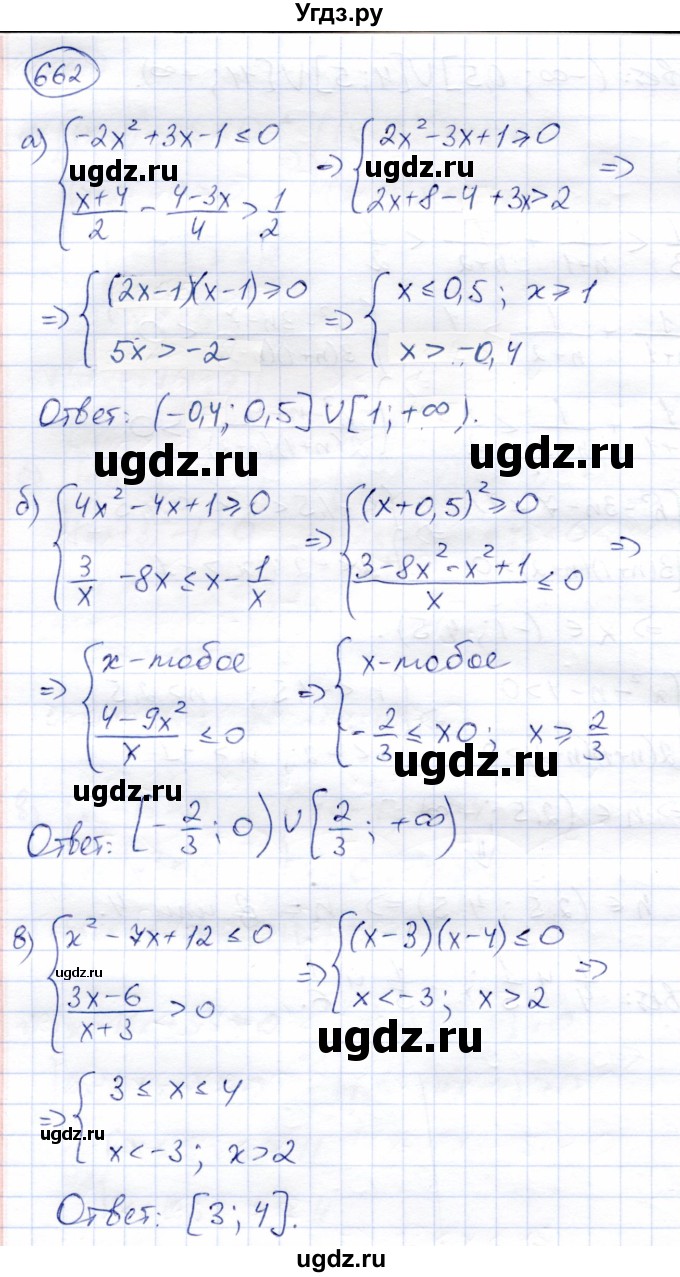 Угдз.ру
662
а) { -2x² + 3x - 1 ≤ 0 ; (x+4)/2 - (4-3x)/4 > 1/2 ⇒ { 2x² - 3x + 1 ≥ 0 ; 2x + 8 - 4 + 3x > 2 ⇒
ugdz.ru ugdz.ru
⇒ { (2x-1)(x-1) ≥ 0 ; 5x > -2 ⇒ { x ≤ 0,5 ; x ≥ 1 ; x > -0,4
Ответ: (-0,4 ; 0,5] ∪ [1 ; +∞).
ugdz.ru ugdz.ru
б) { 4x² - 4x + 1 ≥ 0 ; 3/x - 8x ≤ x - 1/x ⇒ { (x+0,5)² ≥ 0 ; (3-8x²-x²+1)/x ≤ 0 ⇒
⇒ { x - любое ; (4-9x²)/x ≤ 0 ⇒ { x - любое ; -2/3 ≤ x0 ; x ≥ 2/3
ugdz.ru
ugdz.ru
Ответ: [-2/3 ; 0) ∪ [2/3 ; +∞)
в) { x² - 7x + 12 ≤ 0 ; (3x-6)/(x+3) > 0 ⇒ { (x-3)(x-4) ≤ 0 ; x < -3 ; x > 2 ⇒
ugdz.ru
ugdz.ru
⇒ { 3 ≤ x ≤ 4 ; x < -3 ; x > 2
ugdz.ru
Ответ: [3 ; 4].
ugdz.ru